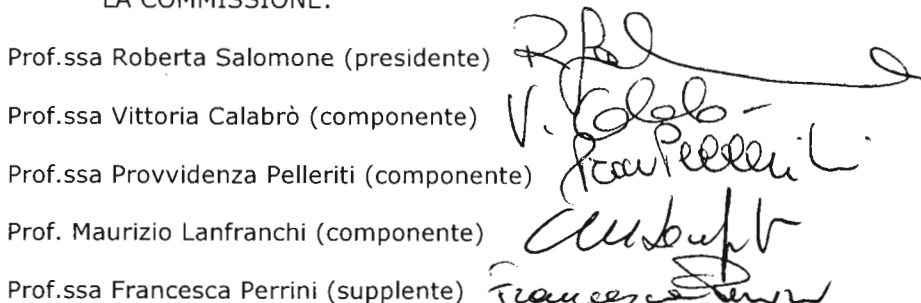 LA COMMISSIONE:
Prof.ssa Roberta Salomone (presidente)
Prof.ssa Vittoria Calabrò (componente) V. Calabrò
Prof.ssa Provvidenza Pelleriti (componente) Pelleriti
Prof. Maurizio Lanfranchi (componente)
Prof.ssa Francesca Perrini (supplente) Francesca Perrini